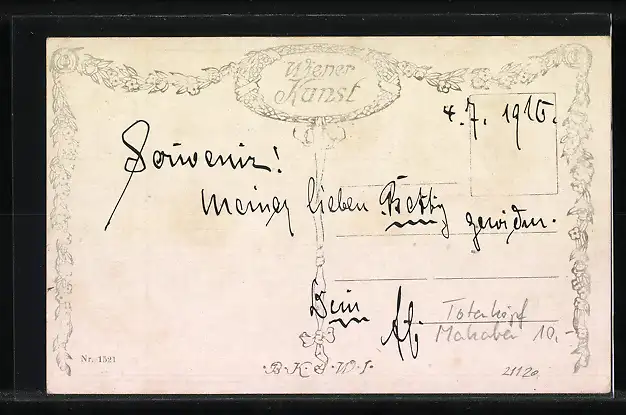 Wiener
Kunst
4. 7. 1915.
Souvenir!
Meiner lieben Betty
gewidm.
Dein
Totenkopf
Makaber 10.
Nr. 1521
B·K·W·I·
21120